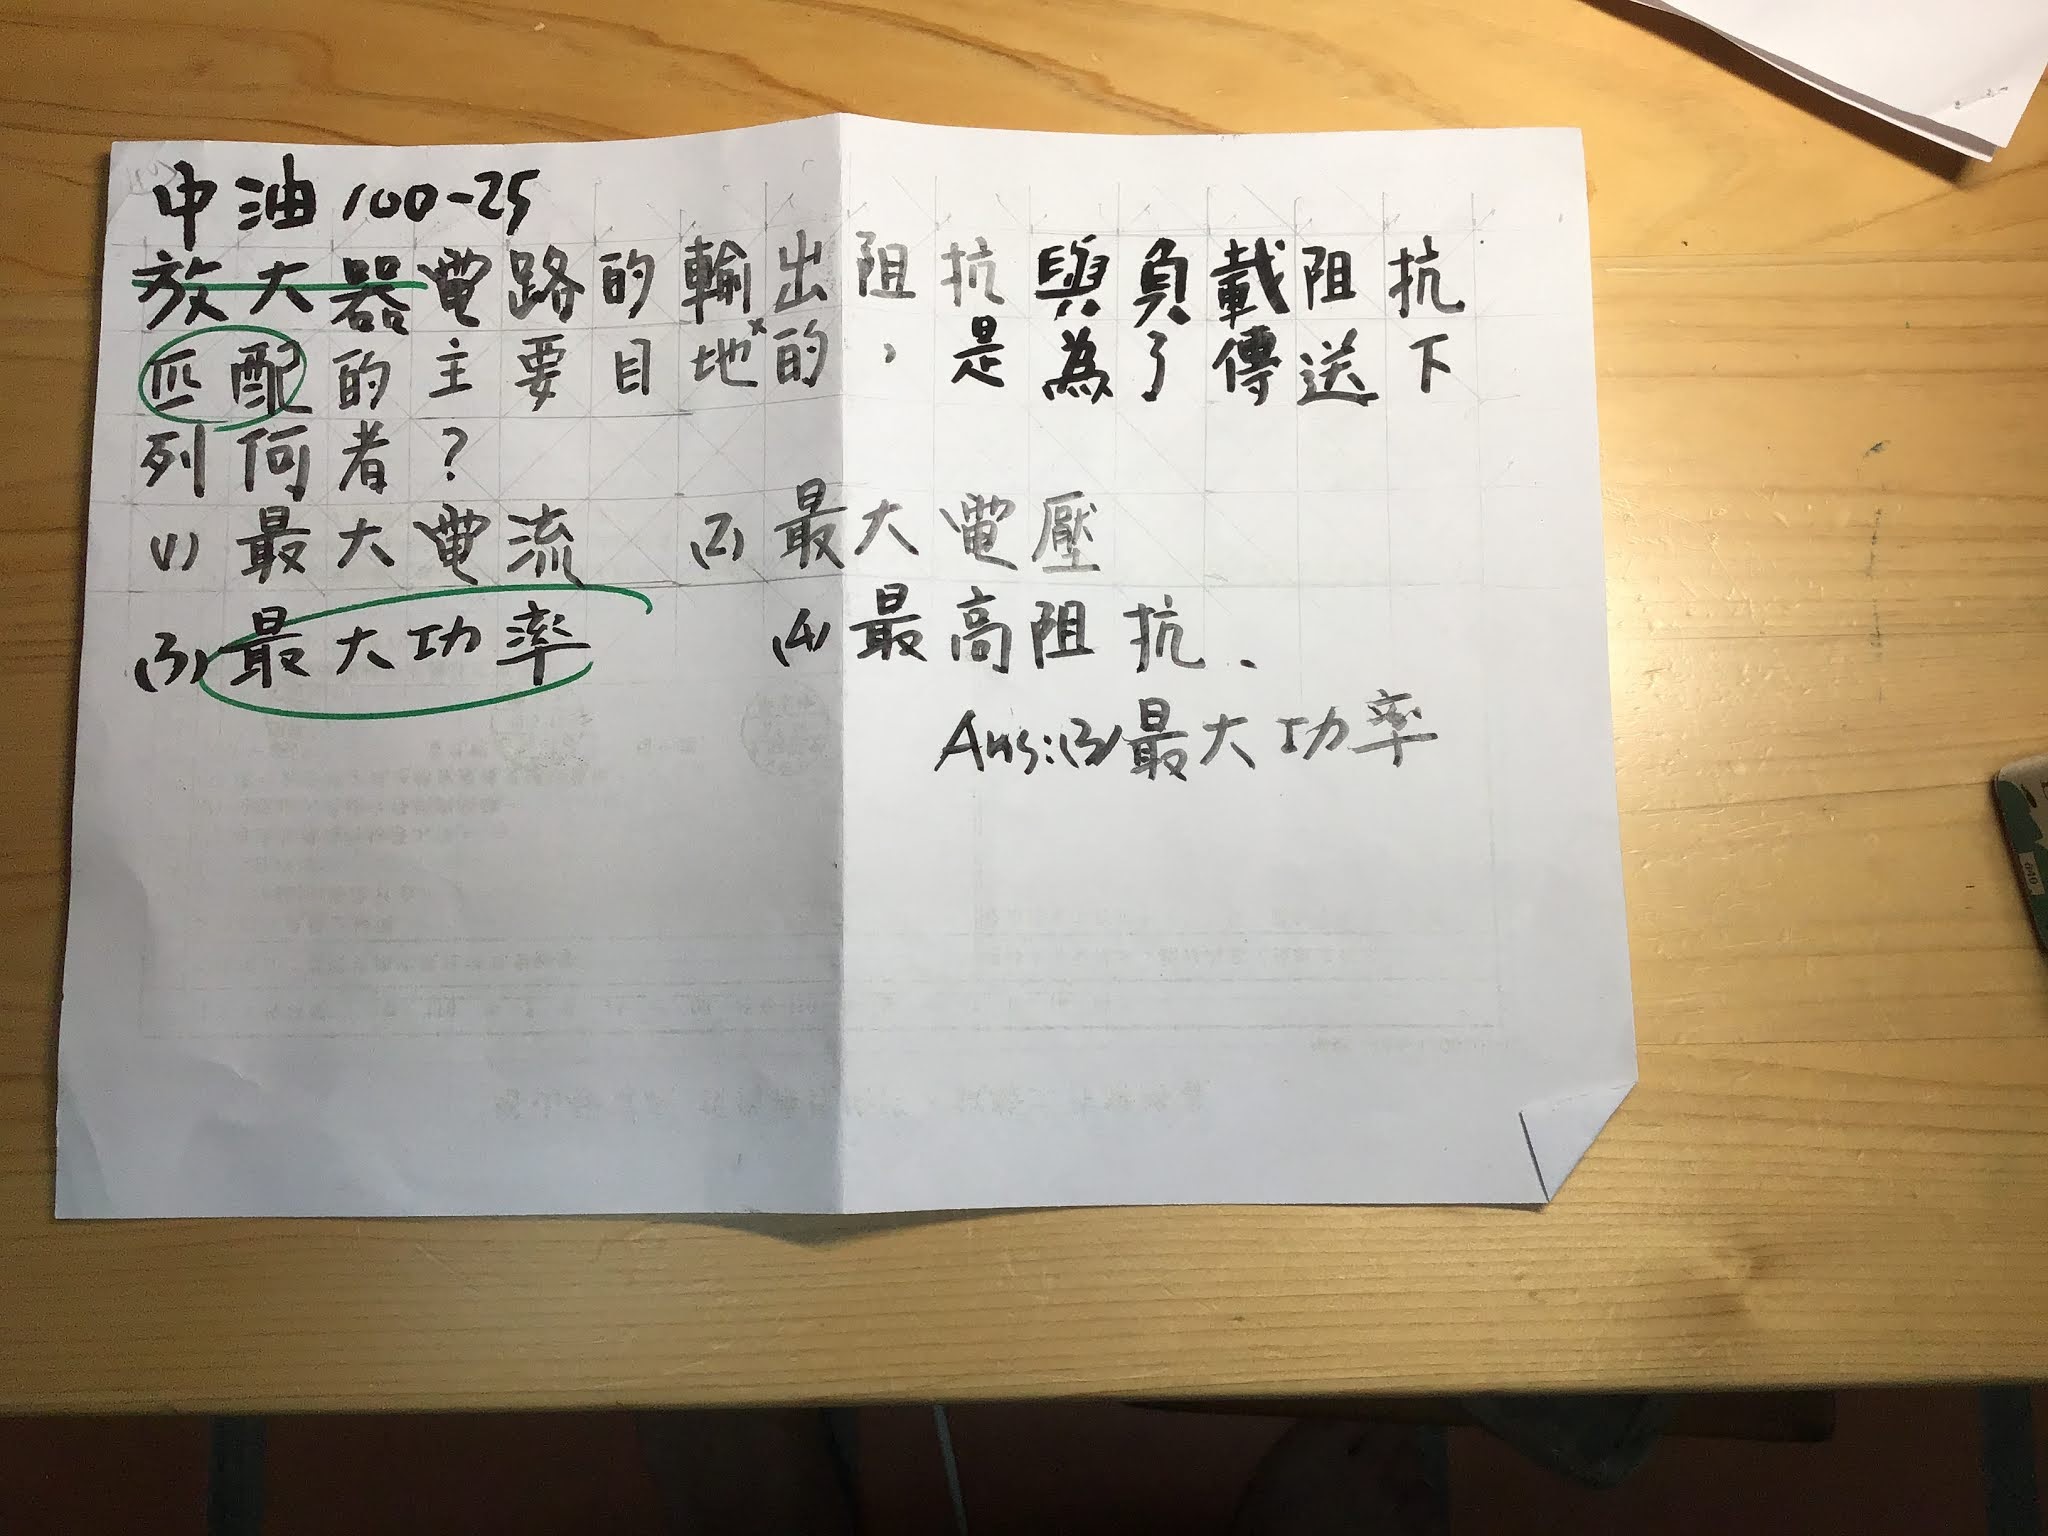 中油100-25
放大器電路的輸出阻抗與負載阻抗
匹配的主要目地×的，是為了傳送下
列何者？
(1) 最大電流 (2) 最大電壓
(3) 最大功率 (4) 最高阻抗.
Ans:(3)最大功率